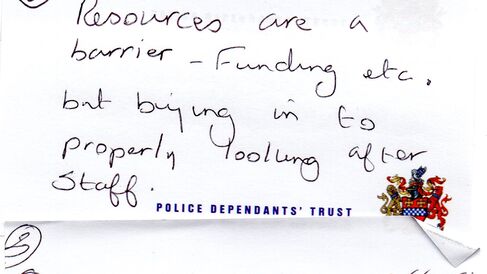 Resources are a
barrier - Funding etc.
but buying in to
properly looking after
Staff.
POLICE DEPENDANTS' TRUST
3